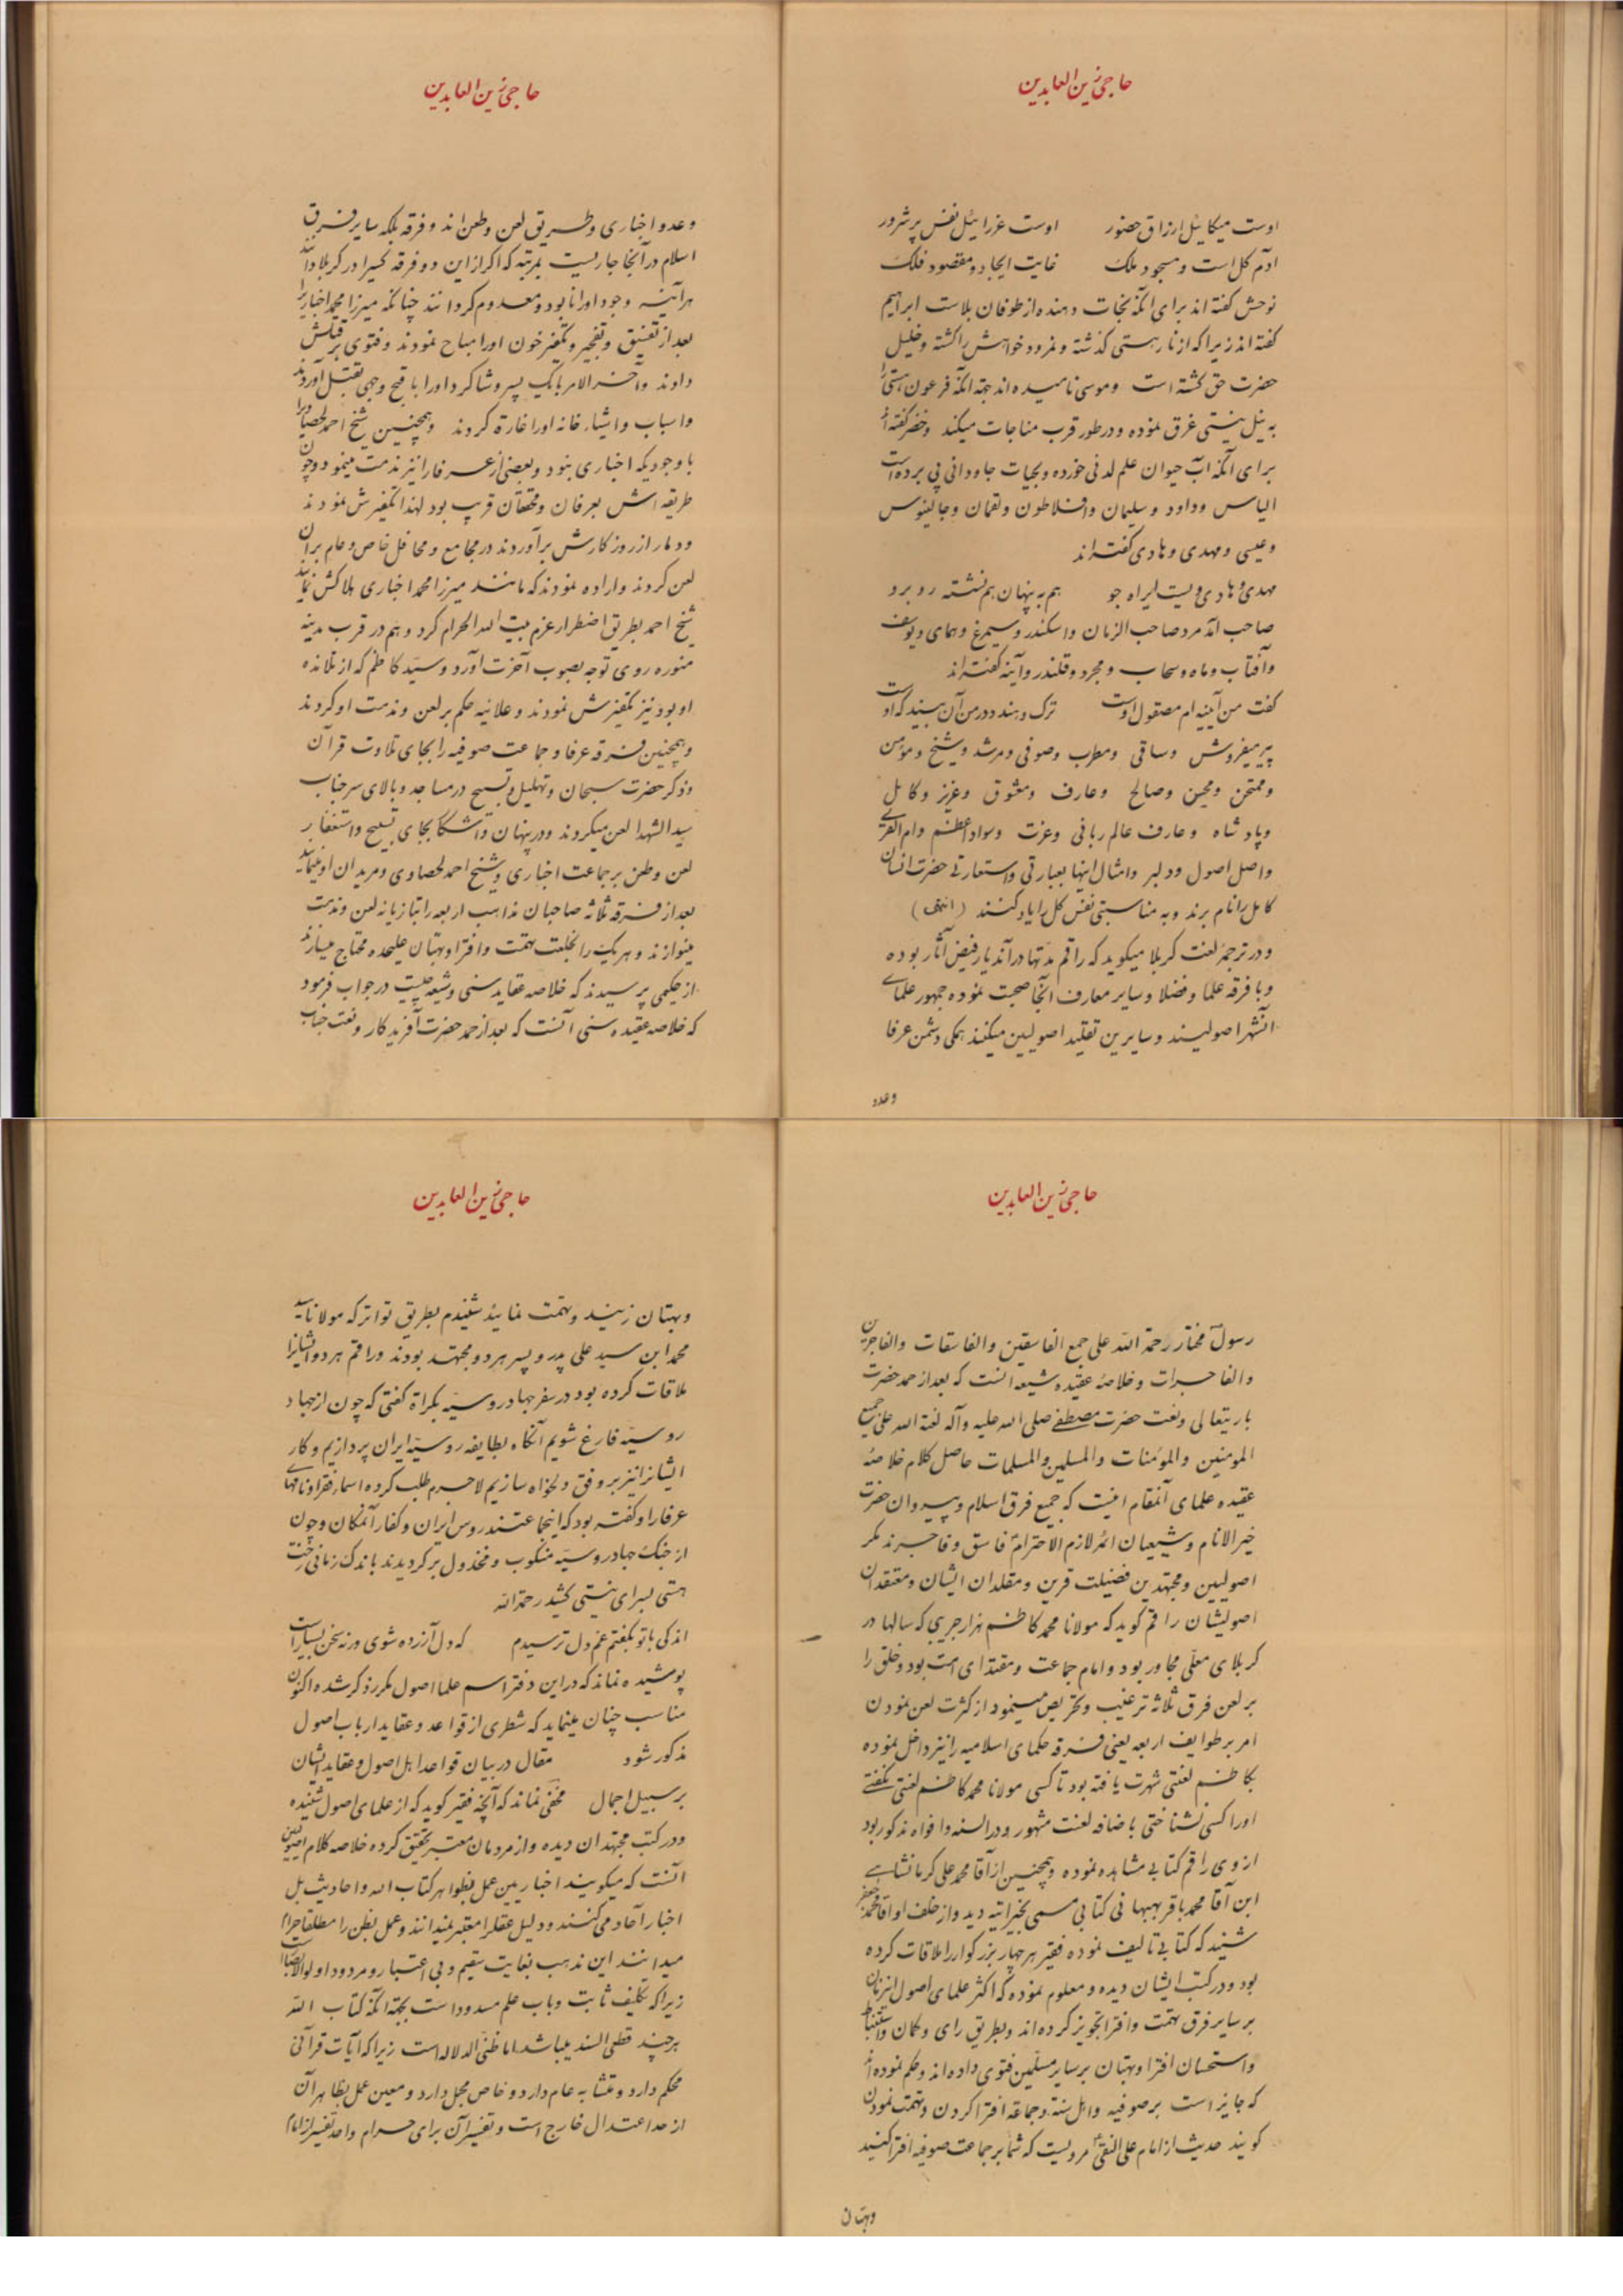 حاجی زین العابدین
اوست میکائیل ارزاق حضور اوست عزرائیل نفس پرشرور
آدم کل است و مسجود ملک غایت ایجاد و مقصود فلک
نوحش گفته اند برای آنکه نجات دهنده از طوفان بلاست ابراهیم
گفته اند زیرا که از نار هستی گذشته و نمرود خواهش را کشته و خلیل
حضرت حق گشته است و موسی نامیده اند جهة آنکه فرعون هستی را
به نیل نیستی غرق نموده و در طور قرب مناجات میکند و خضر گفته اند
برای آنکه آب حیوان علم لدنی خورده و بحیات جاودانی پی برده است
الیاس و داود و سلیمان و افلاطون و لقمان و جالینوس
و عیسی و مهدی و هادی گفته اند
مهدی و هادی ویست ای راه جو هم به پنهان هم نشسته روبرو
صاحب آمد مرد صاحب الزمان و اسکندر و سیمرغ و همای و یوسف
و آفتاب و ماه و سحاب و مجرد و قلندر و آینه گفته اند
گفت من آیینه ام مصقول دوست ترک و هندو در من آن بیند که اوست
پیر میفروش و ساقی و مطرب و صوفی و مرشد و شیخ و مؤمن
و ممتحن و محسن و صالح و عارف و معشوق و عزیز و کامل
و پادشاه و عارف عالم ربانی و عزت و سواد اعظم و ام القری
و اصل اصول و دلبر و امثال اینها بعبارتی و استعارتی حضرت انسان
کامل را نام برند و به مناسبتی نفس کل را یاد کنند (انتهی)
و در ترجمهٔ لغت کربلا میگوید که راقم مدتها در آندیار فیض آثار بوده
و با فرقه علما و فضلا و سایر معارف آنجا صحبت نموده جمهور علمای
آنشهر اصولیند و سایرین تقلید اصولیین میکنند همگی دشمن عرفا
وعدو
حاجی زین العابدین
وعدو اخباری و طریق لعن و طعن اند و فرقه بلکه سایر فرق
اسلام در آنجا جاریست بمرتبه که اگر از این دو فرقه کسیرا در کربلا دانند
هر آینه وجود او را نابود و معدوم گردانند چنانکه میرزا محمد اخباریرا
بعد از تفسیق و تفجیر و تکفیر خون او را مباح نمودند و فتوی بر قتلش
دادند و آخر الامر با یک پسر و شاگرد او را باقبح وجهی بقتل آوردند
و اسباب و اشیاء خانه او را غارة کردند و همچنین شیخ احمد لحصاویرا
با وجودیکه اخباری نبود و بعضی از عرفا را نیز مذمت مینمود و چون
طریقه اش بعرفان و محققان قریب بود لهذا تکفیرش نمودند
و دمار از روزگارش برآوردند در مجامع و محافل خاص و عام بر آن
لعن کردند و اراده نمودند که مانند میرزا محمد اخباری هلاکش نمایند
شیخ احمد بطریق اضطرار عزم بیت الله الحرام کرد و هم در قرب مدینه
منوره روی توجه بصوب آخرت آورد و سید کاظم که از تلامذه
او بود نیز تکفیرش نمودند و علانیه حکم بر لعن و مذمت او کردند
و همچنین فرقه عرفا و جماعت صوفیه را بجای تلاوت قرآن
و ذکر حضرت سبحان و تهلیل و تسبیح در مساجد و بالای سر جناب
سید الشهدا لعن میکردند و در پنهان و آشکارا بجای تسبیح و استغفار
لعن و طعن بر جماعت اخباری و شیخ احمد لحصاوی و مریدان او مینمایند
بعد از فرقه ثلاثه صاحبان مذاهب اربعه را بتازیانه لعن و مذمت
مینوازند و هر یک را بخلعت تهمت و افترا و بهتان علیحده محتاج میسازند
از حکیمی پرسیدند که خلاصه عقاید سنی و شیعه چیست در جواب فرمود
که خلاصه عقیده سنی آنست که بعد از حمد حضرت آفریدگار و نعت جناب
حاجی زین العابدین
رسول مختار رحمة الله علی جمع الفاسقین و الفاسقات و الفاجرین
و الفاجرات و خلاصهٔ عقیده شیعه آنست که بعد از حمد حضرت
باریتعالی و نعت حضرت مصطفی صلی الله علیه و آله لعنة الله علی جمیع
المومنین و المؤمنات و المسلمین و المسلمات حاصل کلام خلاصهٔ
عقیده علمای آنمقام اینست که جمیع فرق اسلام و پیروان حضرت
خیر الانام و شیعیان ائمهٔ لازم الاحترام فاسق و فاجرند مگر
اصولیین و مجتهدین فضیلت قرین و مقلدان ایشان و معتقدان
اصولیشان راقم گوید که مولانا محمد کاظم هزارجریبی که سالها در
کربلای معلی مجاور بود و امام جماعت و مقتدای امت بود و خلق را
بر لعن فرق ثلاثه ترغیب و تحریص مینمود از کثرت لعن نمودن
امر بر طوایف اربعه یعنی فرقه حکمای اسلامیه را نیز داخل نموده
بکاظم لعنتی شهرت یافته بود تا کسی مولانا محمد کاظم لعنتی نگفتی
او را کسی نشناختی باضافه لعنت مشهور و در السنه و افواه مذکور بود
از وی راقم کتابی مشاهده نموده و همچنین از آقا محمد علی کرمانشاهی
ابن آقا محمد باقر بهبهانی کتابی مسمی بخیراتیه دید و از خلف او آقا محمد جعفر
شنید که کتابی تالیف نموده فقیر هر چهار بزرگوار را ملاقات کرده
بود و در کتب ایشان دیده و معلوم نموده که اکثر علمای اصول اینزمان
بر سایر فرق تهمت و افترا تجویز کرده اند و بطریق رای و گمان و استنباط
و استحسان افترا و بهتان بر سایر مسلمین فتوی داده اند و حکم نموده اند
که جایز است بر صوفیه و اهل سنة و جماعة افترا کردن و تهمت نمودن
گویند حدیث از امام علی النقی مرویست که شما بر جماعت صوفیه افترا کنید
وبهتان
حاجی زین العابدین
و بهتان زنید و تهمت نمائید شنیدم بطریق تواتر که مولانا سید
محمد ابن سید علی پدر و پسر هر دو مجتهد بودند و راقم هر دو ایشانرا
ملاقات کرده بود در سفر جهاد روسیه بکراة گفتی که چون از جهاد
روسیه فارغ شویم آنگاه بطایفه روسیه ایران پردازیم و کار
ایشانرا نیز بر وفق دلخواه سازیم لاجرم طلب کرده اسماء فقرا و نامهای
عرفا را و گفته بود که اینجماعتند روس ایران و کفار آنمکان و چون
از جنگ جهاد روسیه منکوب و مخذول برگردیدند باندک زمانی رخت
هستی بسرای نیستی کشید رحمه الله
اندکی با تو بگفتم غم دل ترسیدم که دل آزرده شوی ورنه سخن بسیار است
پوشیده نماند که در این دفتر اسم علما اصول مکرر ذکر شده اکنون
مناسب چنان مینماید که شطری از قواعد و عقاید ارباب اصول
مذکور شود مقال در بیان قواعد اهل اصول و عقاید ایشان
بر سبیل اجمال مخفی نماند که آنچه فقیر گوید که از علمای اصول شنیده
و در کتب مجتهدان دیده و از مردمان معتبر تحقیق کرده خلاصه کلام اصولیین
آنست که میگویند اخباریین عمل بظواهر کتاب الله و احادیث بل
اخبار آحاد می کنند و دلیل عقلرا معتبر نمیدانند و عمل بظن را مطلقا حرام
میدانند این مذهب بغایت سقیم و بی اعتبار و مردود اولوالابصار است
زیرا که تکلیف ثابت و باب علم مسدود است بجهة آنکه کتاب الله
هر چند قطعی السند میباشد اما ظنی الدلاله است زیرا که آیات قرآنی
محکم دارد و متشابه عام دارد و خاص مجمل دارد و معین عمل بظاهر آن
از حد اعتدال خارج است و تفسیر آن برای حرام واحد تفسیر از امام